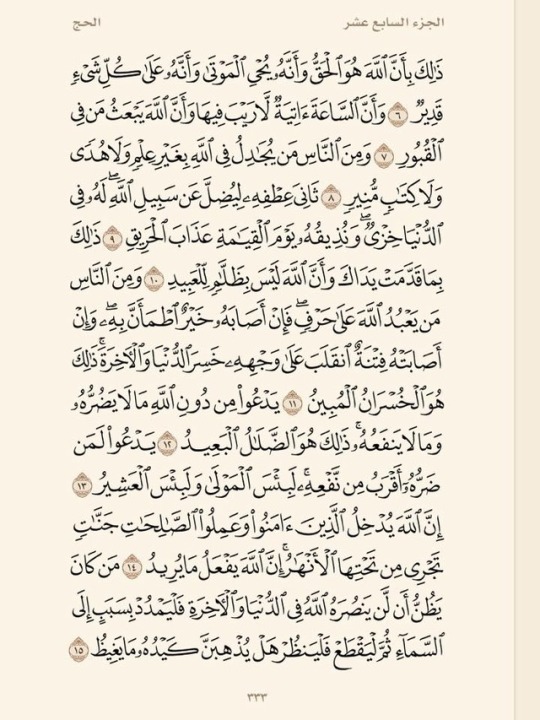 الجزء السابع عشر
الحج
ذَٰلِكَ بِأَنَّ ٱللَّهَ هُوَ ٱلْحَقُّ وَأَنَّهُۥ يُحْىِ ٱلْمَوْتَىٰ وَأَنَّهُۥ عَلَىٰ كُلِّ شَىْءٍ
قَدِيرٌ ٦ وَأَنَّ ٱلسَّاعَةَ ءَاتِيَةٌ لَّا رَيْبَ فِيهَا وَأَنَّ ٱللَّهَ يَبْعَثُ مَن فِى
ٱلْقُبُورِ ٧ وَمِنَ ٱلنَّاسِ مَن يُجَٰدِلُ فِى ٱللَّهِ بِغَيْرِ عِلْمٍ وَلَا هُدًى
وَلَا كِتَٰبٍ مُّنِيرٍ ٨ ثَانِىَ عِطْفِهِۦ لِيُضِلَّ عَن سَبِيلِ ٱللَّهِ ۖ لَهُۥ فِى
ٱلدُّنْيَا خِزْىٌ ۖ وَنُذِيقُهُۥ يَوْمَ ٱلْقِيَٰمَةِ عَذَابَ ٱلْحَرِيقِ ٩ ذَٰلِكَ
بِمَا قَدَّمَتْ يَدَاكَ وَأَنَّ ٱللَّهَ لَيْسَ بِظَلَّٰمٍ لِّلْعَبِيدِ ١٠ وَمِنَ ٱلنَّاسِ
مَن يَعْبُدُ ٱللَّهَ عَلَىٰ حَرْفٍ ۖ فَإِنْ أَصَابَهُۥ خَيْرٌ ٱطْمَأَنَّ بِهِۦ ۖ وَإِنْ
أَصَابَتْهُ فِتْنَةٌ ٱنقَلَبَ عَلَىٰ وَجْهِهِۦ خَسِرَ ٱلدُّنْيَا وَٱلْءَاخِرَةَ ۚ ذَٰلِكَ
هُوَ ٱلْخُسْرَانُ ٱلْمُبِينُ ١١ يَدْعُوا۟ مِن دُونِ ٱللَّهِ مَا لَا يَضُرُّهُۥ
وَمَا لَا يَنفَعُهُۥ ۚ ذَٰلِكَ هُوَ ٱلضَّلَٰلُ ٱلْبَعِيدُ ١٢ يَدْعُوا۟ لَمَن
ضَرُّهُۥٓ أَقْرَبُ مِن نَّفْعِهِۦ ۚ لَبِئْسَ ٱلْمَوْلَىٰ وَلَبِئْسَ ٱلْعَشِيرُ ١٣
إِنَّ ٱللَّهَ يُدْخِلُ ٱلَّذِينَ ءَامَنُوا۟ وَعَمِلُوا۟ ٱلصَّٰلِحَٰتِ جَنَّٰتٍ
تَجْرِى مِن تَحْتِهَا ٱلْأَنْهَٰرُ ۚ إِنَّ ٱللَّهَ يَفْعَلُ مَا يُرِيدُ ١٤ مَن كَانَ
يَظُنُّ أَن لَّن يَنصُرَهُ ٱللَّهُ فِى ٱلدُّنْيَا وَٱلْءَاخِرَةِ فَلْيَمْدُدْ بِسَبَبٍ إِلَى
ٱلسَّمَآءِ ثُمَّ لْيَقْطَعْ فَلْيَنظُرْ هَلْ يُذْهِبَنَّ كَيْدُهُۥ مَا يَغِيظُ ١٥
٣٣٣